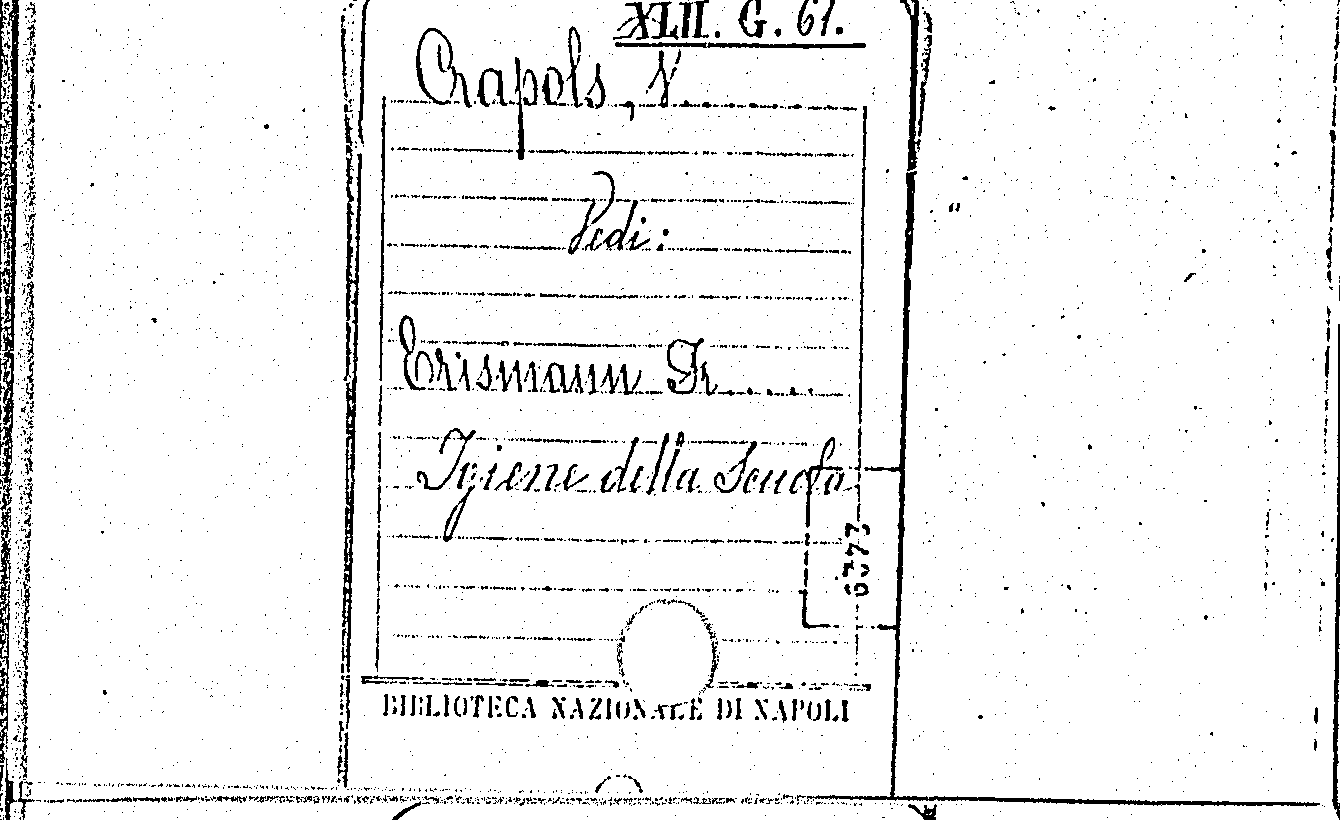 XLII. G. 61.
Crapols, V.........
Vedi:
Erismann Fr.....
Igiene della Scuola
6773
BIBLIOTECA NAZIONALE DI NAPOLI